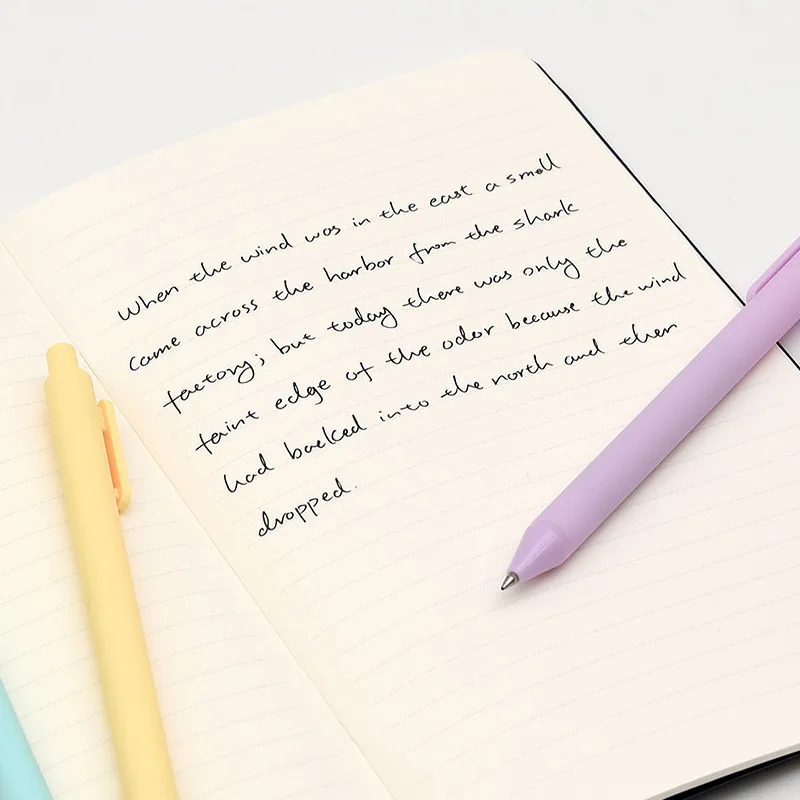 When the wind was in the east a smell
came across the harbor from the shark
factory; but today there was only the
faint edge of the odor because the wind
had backed into the north and then
dropped.